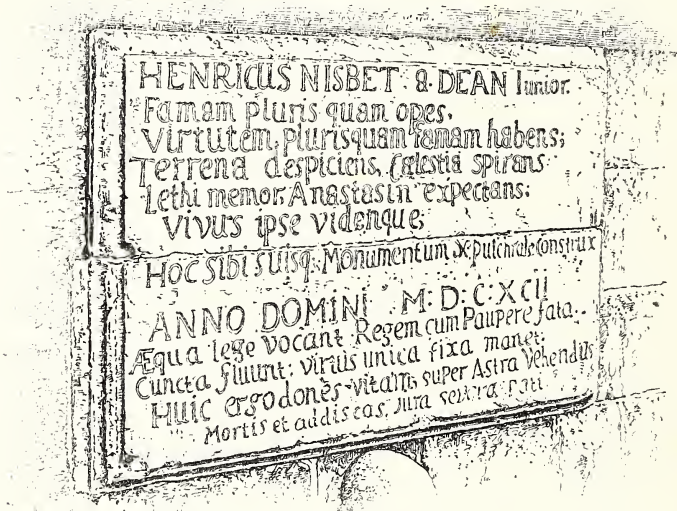 HENRICUS NISBET a DEAN Iunior.
Famam pluris quam opes,
Virtutem, plurisquam famam habens;
Terrena despiciens, Cælestia spirans
Lethi memor, Anastasin expectans;
Vivus ipse vidensque;
Hoc Sibi Suisq; Monumentum Sepulchrale Construx
ANNO DOMINI M: D: C: X C II
Æqua lege vocant Regem cum Paupere fata.
Cuncta fluunt: virtus unica fixa manet:
Huic ergo dones vitam, super Astra Vehendus
Mortis et addiscas, Jura pati